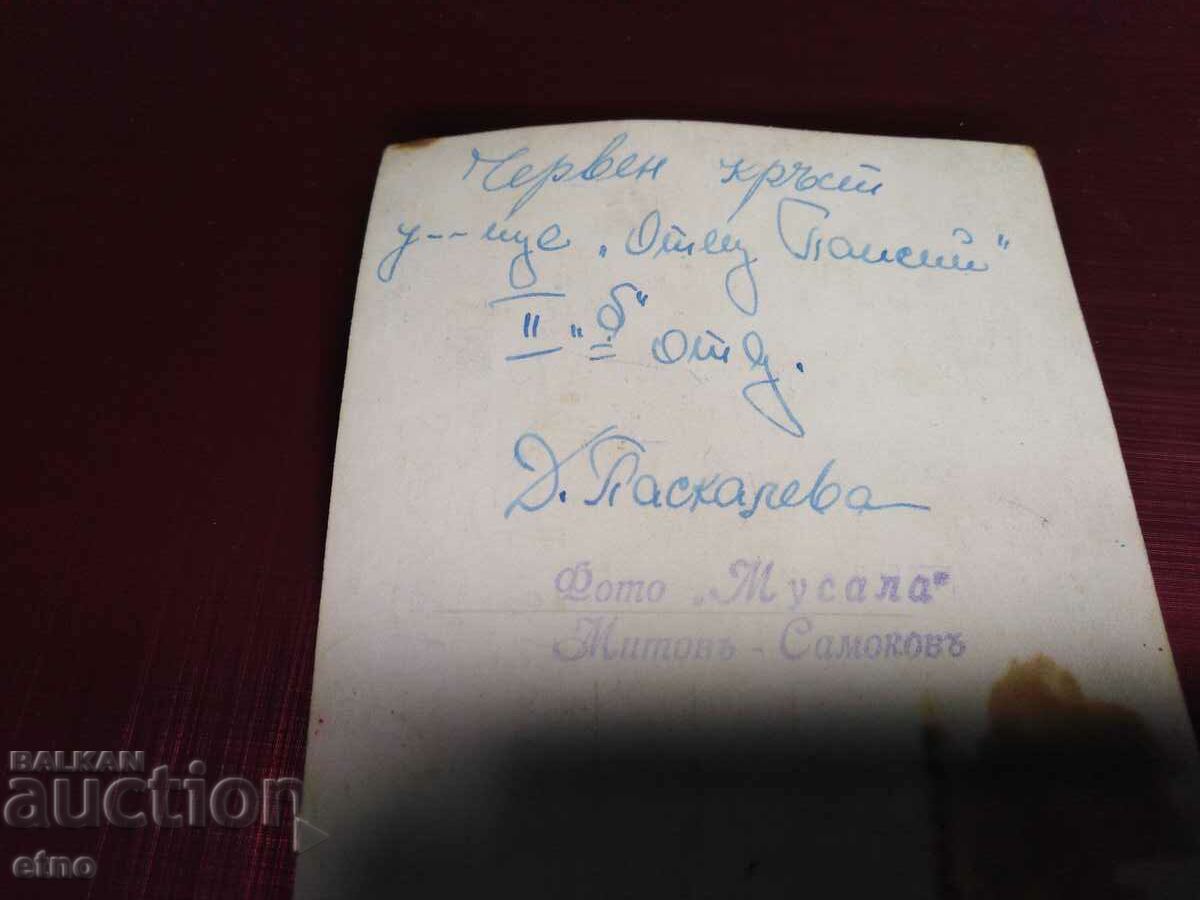 Червен кръст
у--ще „Отец Паисий"
II „б" отд.
Д. Паскалева
Фото „Мусала"
Митовъ - Самоковъ
BALKAN
auction
etno